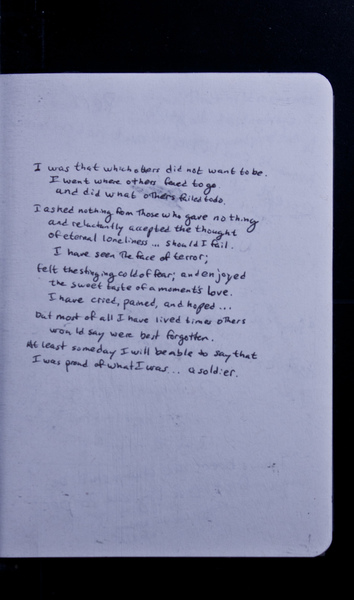 I was that which others did not want to be.
I went where others feared to go.
and did what others failed to do.
I asked nothing from Those who gave nothing
and reluctantly accepted the thought
of eternal loneliness ... should I fail.
I have seen The face of terror;
felt the stinging cold of fear; and enjoyed
the sweet taste of a moment's love.
I have cried, pained, and hoped ...
but most of all I have lived times others
would say were best forgotten.
At least someday I will be able to say that
I was proud of what I was ... a soldier.